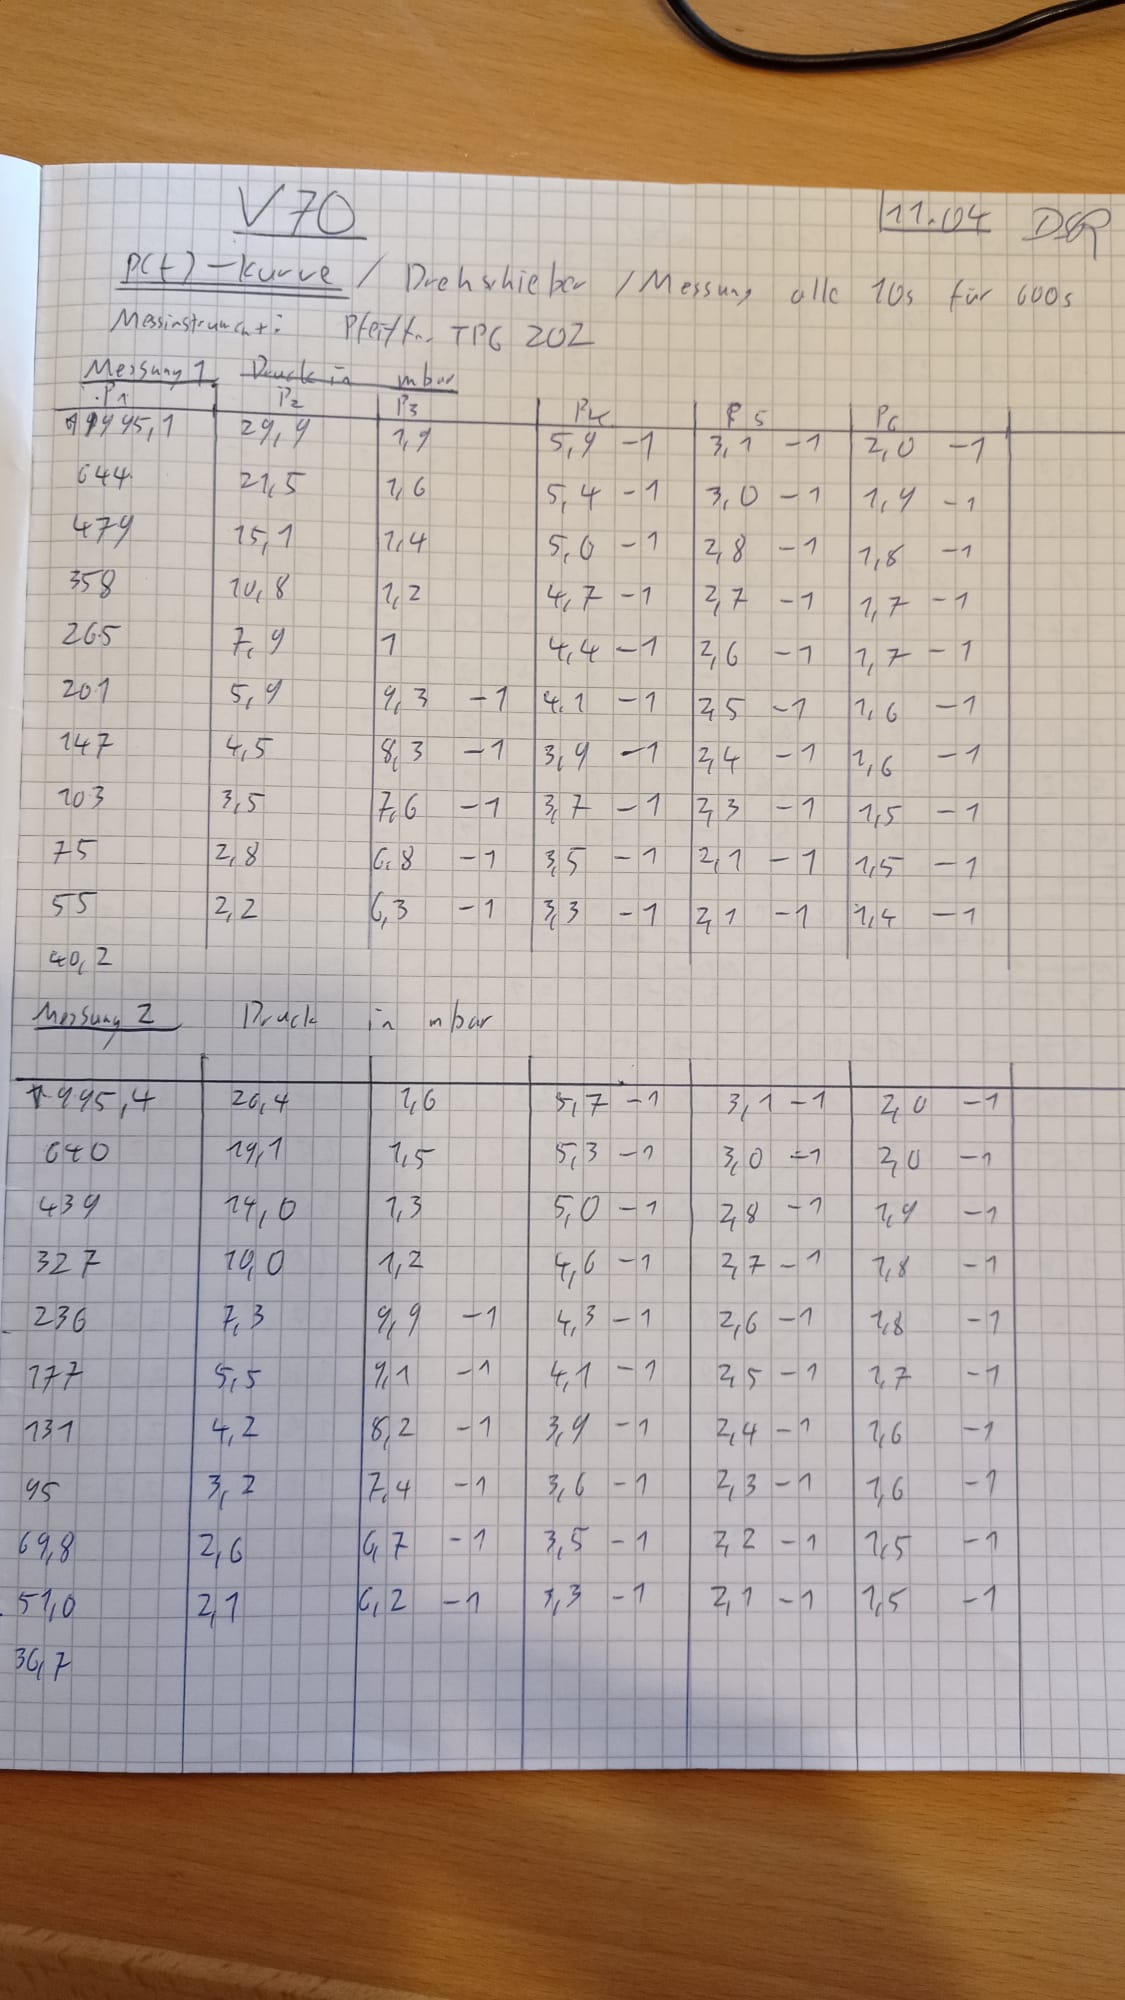 V70 11.04 DSR
p(t)-Kurve / Drehschieber / Messung alle 10s für 600s
Messinstrument: Pfeiffer TPG 202
Messung 1 Druck in mbar
P1 P2 P3 P4 P5 P6
995,1 29,9 1,9 5,9 -1 3,1 -1 2,0 -1
644 21,5 1,6 5,4 -1 3,0 -1 1,9 -1
479 15,1 1,4 5,0 -1 2,8 -1 1,8 -1
358 10,8 1,2 4,7 -1 2,7 -1 1,7 -1
265 7,9 1 4,4 -1 2,6 -1 1,7 -1
201 5,9 9,3 -1 4,1 -1 2,5 -1 1,6 -1
147 4,5 8,3 -1 3,9 -1 2,4 -1 1,6 -1
103 3,5 7,6 -1 3,7 -1 2,3 -1 1,5 -1
75 2,8 6,8 -1 3,5 -1 2,1 -1 1,5 -1
55 2,2 6,3 -1 3,3 -1 2,1 -1 1,4 -1
40,2
Messung 2 Druck in mbar
995,4 26,4 1,6 5,7 -1 3,1 -1 2,0 -1
640 19,1 1,5 5,3 -1 3,0 -1 2,0 -1
439 14,0 1,3 5,0 -1 2,8 -1 1,9 -1
327 10,0 1,2 4,6 -1 2,7 -1 1,8 -1
236 7,3 9,9 -1 4,3 -1 2,6 -1 1,8 -1
177 5,5 9,1 -1 4,1 -1 2,5 -1 1,7 -1
131 4,2 8,2 -1 3,9 -1 2,4 -1 1,6 -1
95 3,2 7,4 -1 3,6 -1 2,3 -1 1,6 -1
69,8 2,6 6,7 -1 3,5 -1 2,2 -1 1,5 -1
51,0 2,1 6,2 -1 3,3 -1 2,1 -1 1,5 -1
36,7